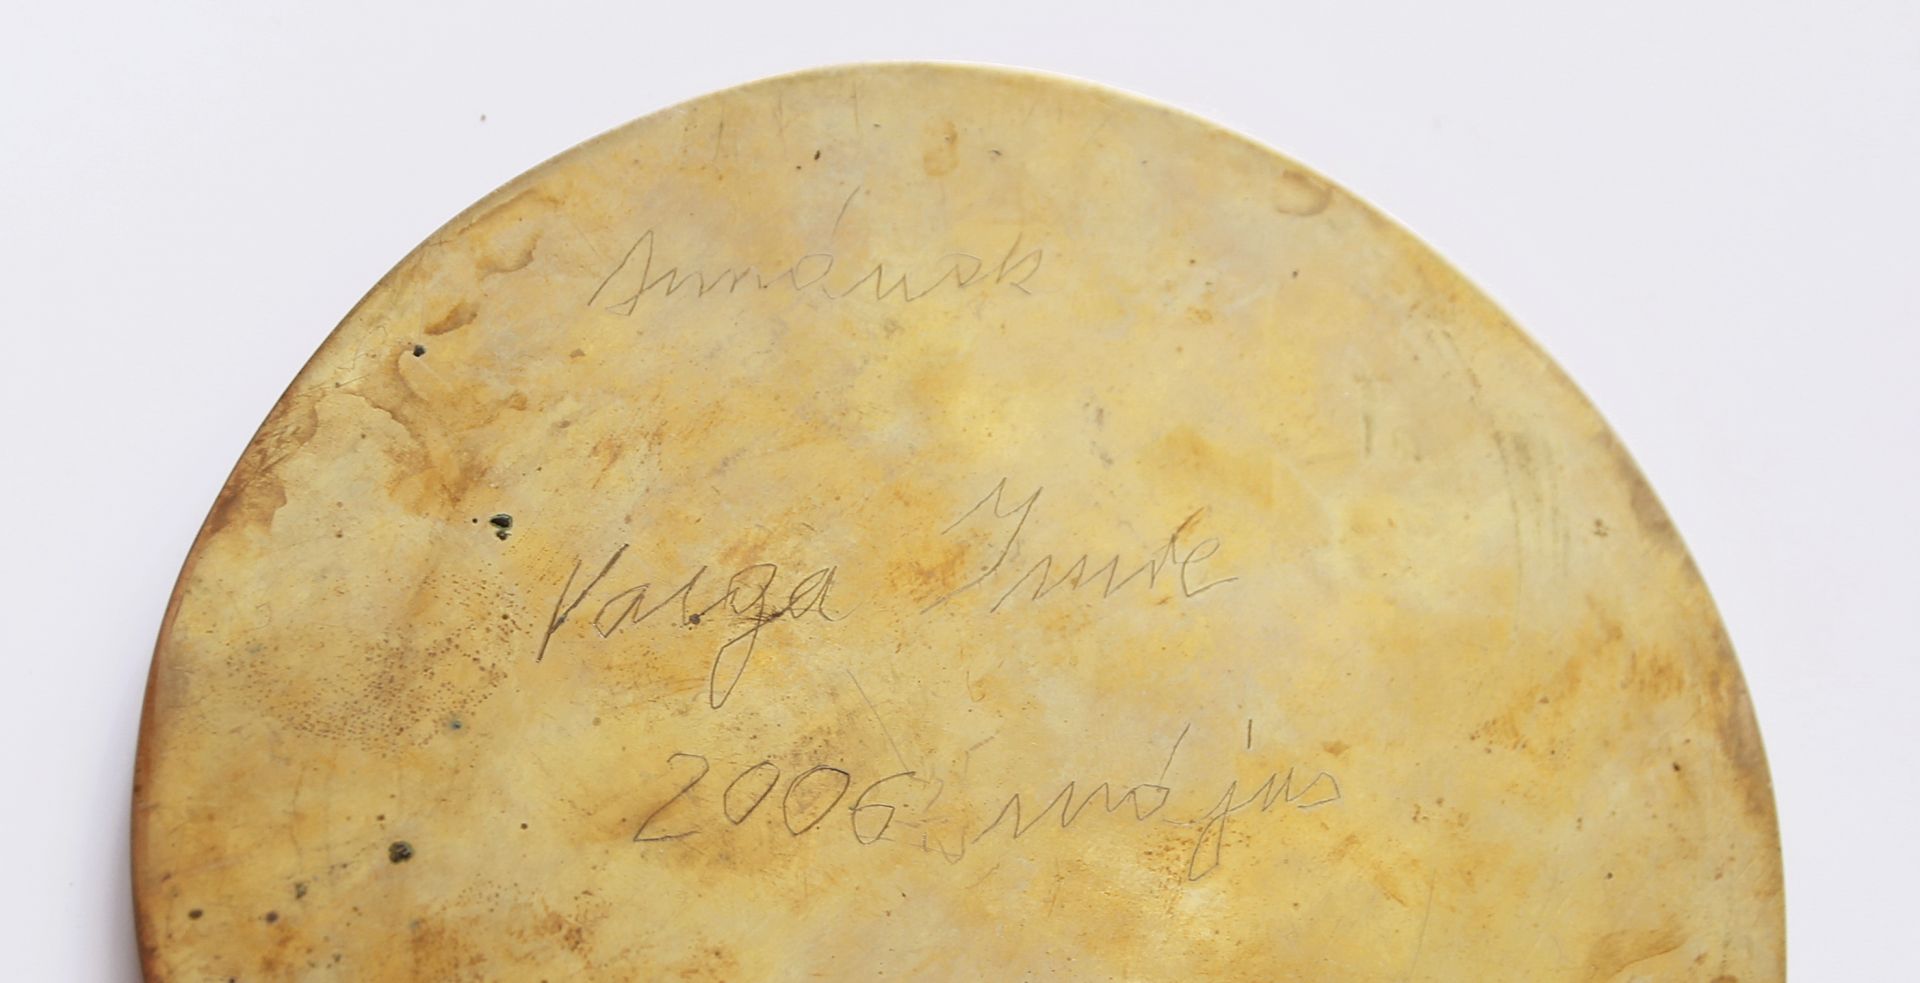 Annának
Varga Imre
2006 május